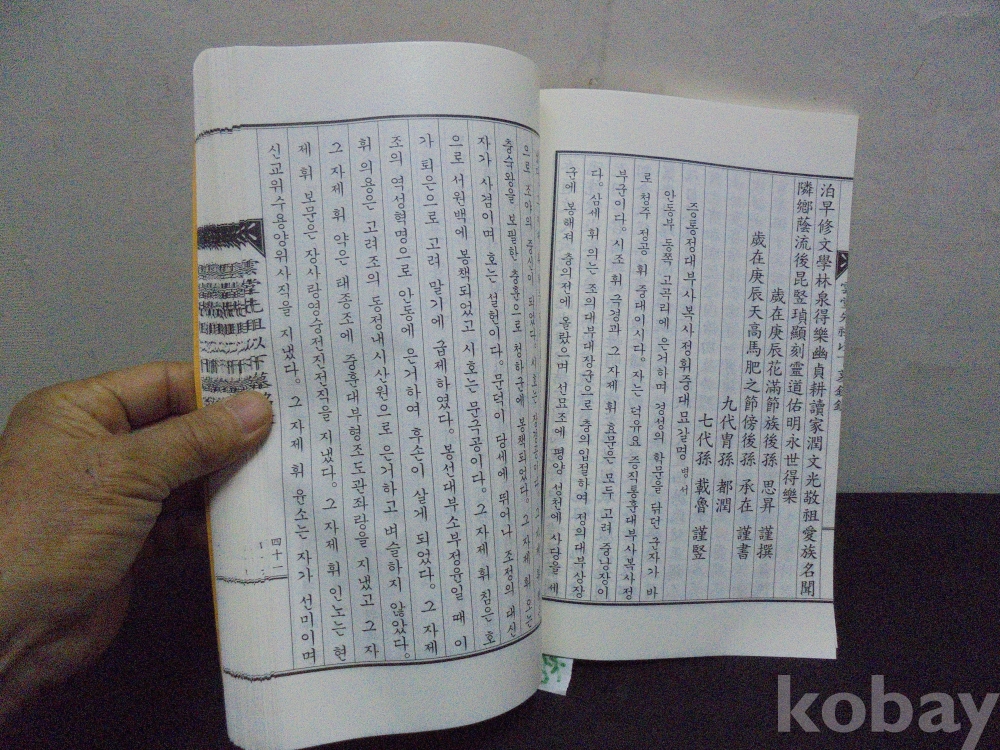 泊早修文學林泉得樂幽貞耕讀家潤文光敬祖愛族名聞
隣鄉蔭流後昆竪瓆顯刻靈道佑明永世得樂
歲在庚辰花滿節族後孫 思昇 謹撰
歲在庚辰天高馬肥之節傍後孫 承在 謹書
九代胄孫 都潤
七代孫 載魯 謹竪
증통정대부사복사정휘중대 묘갈명 병서
안동부 동쪽 고곡리에 은거하며 경성의 학문을 닦던 군자가 바
로 청주 정공 휘 중대이시다. 자는 덕유요 증직통훈대부사복사정
부군이다. 시조 휘 극경과 그 자제 휘 효문은 모두 고려 중낭장이
다. 삼세 휘 의는 조의대부대장군으로 충의입절하여 정의대부상장
군에 봉해져 충의전에 올랐으며 선묘조에 평양 성천에 사당을 세
충숙왕을 보필한 충훈으로 청하군에 봉책되었다. 그 자제 휘 오는
자가 사겸이며 호는 설헌이다. 문덕이 당세에 뛰어나 조정의 대신
으로 서원백에 봉책되었고 시호는 문극공이다. 그 자제 휘 침은 호
가 퇴은으로 고려 말기에 급제하였다. 봉선대부소부정윤일 때 이
조의 역성혁명으로 안동에 은거하여 후손이 살게 되었다. 그 자제
휘 의용은 고려조의 동정내시산원으로 은거하고 벼슬하지 않았다.
그 자제 휘 약은 태종조에 중훈대부형조도관좌랑을 지냈고 그 자
제 휘 보문은 장사랑영숭전진전직을 지냈다. 그 자제 휘 인노는 현
신교위수용양위사직을 지냈다. 그 자제 휘 윤소는 자가 선미이며
雲堂先祖以下墓
四十一
kobay